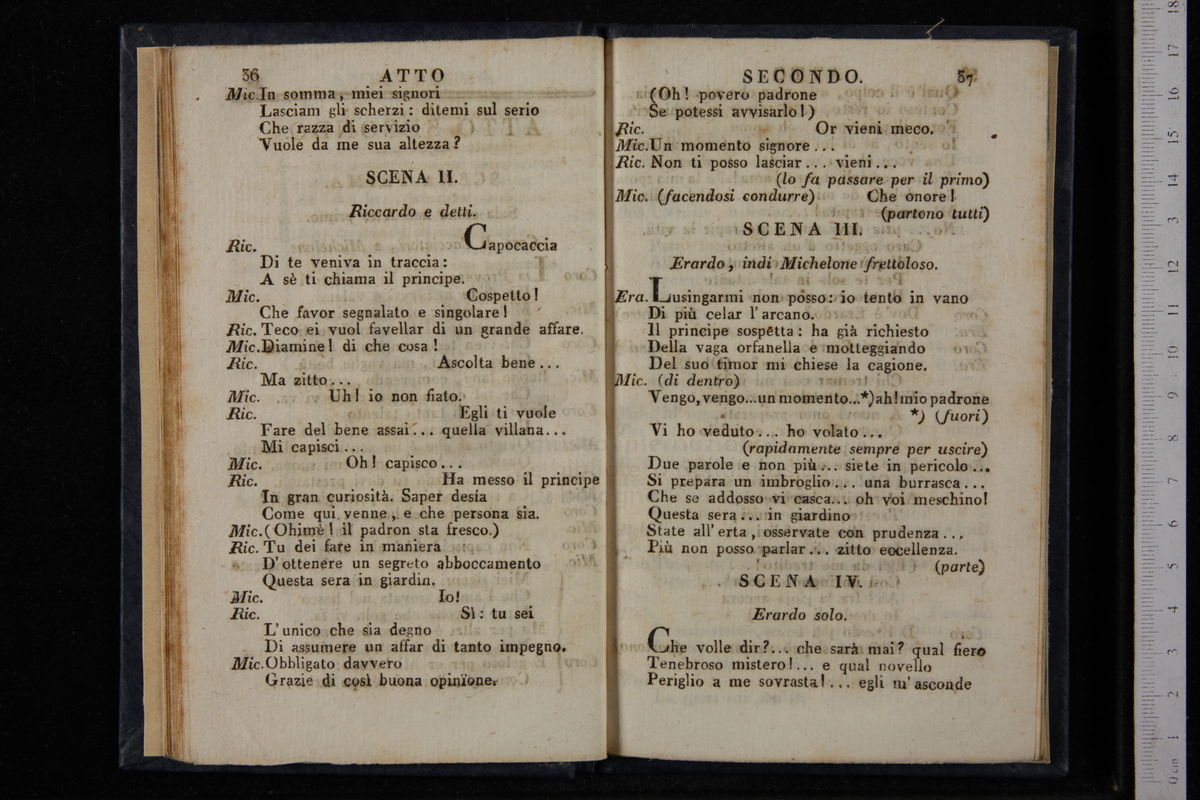 36 ATTO
Mic. In somma, miei signori
Lasciam gli scherzi: ditemi sul serio
Che razza di servizio
Vuole da me sua altezza?
SCENA II.
Riccardo e detti.
Ric. Capocaccia
Di te veniva in traccia:
A sè ti chiama il principe.
Mic. Cospetto!
Che favor segnalato e singolare!
Ric. Teco ei vuol favellar di un grande affare.
Mic. Diamine! di che cosa!
Ric. Ascolta bene...
Ma zitto...
Mic. Uh! io non fiato.
Ric. Egli ti vuole
Fare del bene assai... quella villana...
Mi capisci...
Mic. Oh! capisco...
Ric. Ha messo il principe
In gran curiosità. Saper desia
Come qui venne, e che persona sia.
Mic. (Ohimè! il padron sta fresco.)
Ric. Tu dei fare in maniera
D'ottenere un segreto abboccamento
Questa sera in giardin.
Mic. Io!
Ric. Sì: tu sei
L'unico che sia degno
Di assumere un affar di tanto impegno.
Mic. Obbligato davvero
Grazie di così buona opinïone.
SECONDO. 37
(Oh! povero padrone
Se potessi avvisarlo!)
Ric. Or vieni meco.
Mic. Un momento signore...
Ric. Non ti posso lasciar... vieni...
(lo fa passare per il primo)
Mic. (facendosi condurre) Che onore!
(partono tutti)
SCENA III.
Erardo, indi Michelone frettoloso.
Era. Lusingarmi non posso: io tento in vano
Di più celar l'arcano.
Il principe sospetta: ha già richiesto
Della vaga orfanella e motteggiando
Del suo timor mi chiese la cagione.
Mic. (di dentro)
Vengo, vengo...un momento...*)ah! mio padrone
*) (fuori)
Vi ho veduto... ho volato...
(rapidamente sempre per uscire)
Due parole e non più... siete in pericolo...
Si prepara un imbroglio... una burrasca...
Che se addosso vi casca... oh voi meschino!
Questa sera... in giardino
State all'erta, osservate con prudenza...
Più non posso parlar... zitto eccellenza.
(parte)
SCENA IV.
Erardo solo.
Che volle dir?... che sarà mai? qual fiero
Tenebroso mistero!... e qual novello
Periglio a me sovrasta!... egli m'asconde
0 cm 1 2 3 4 5 6 7 8 9 10 11 12 13 14 15 16 17 18